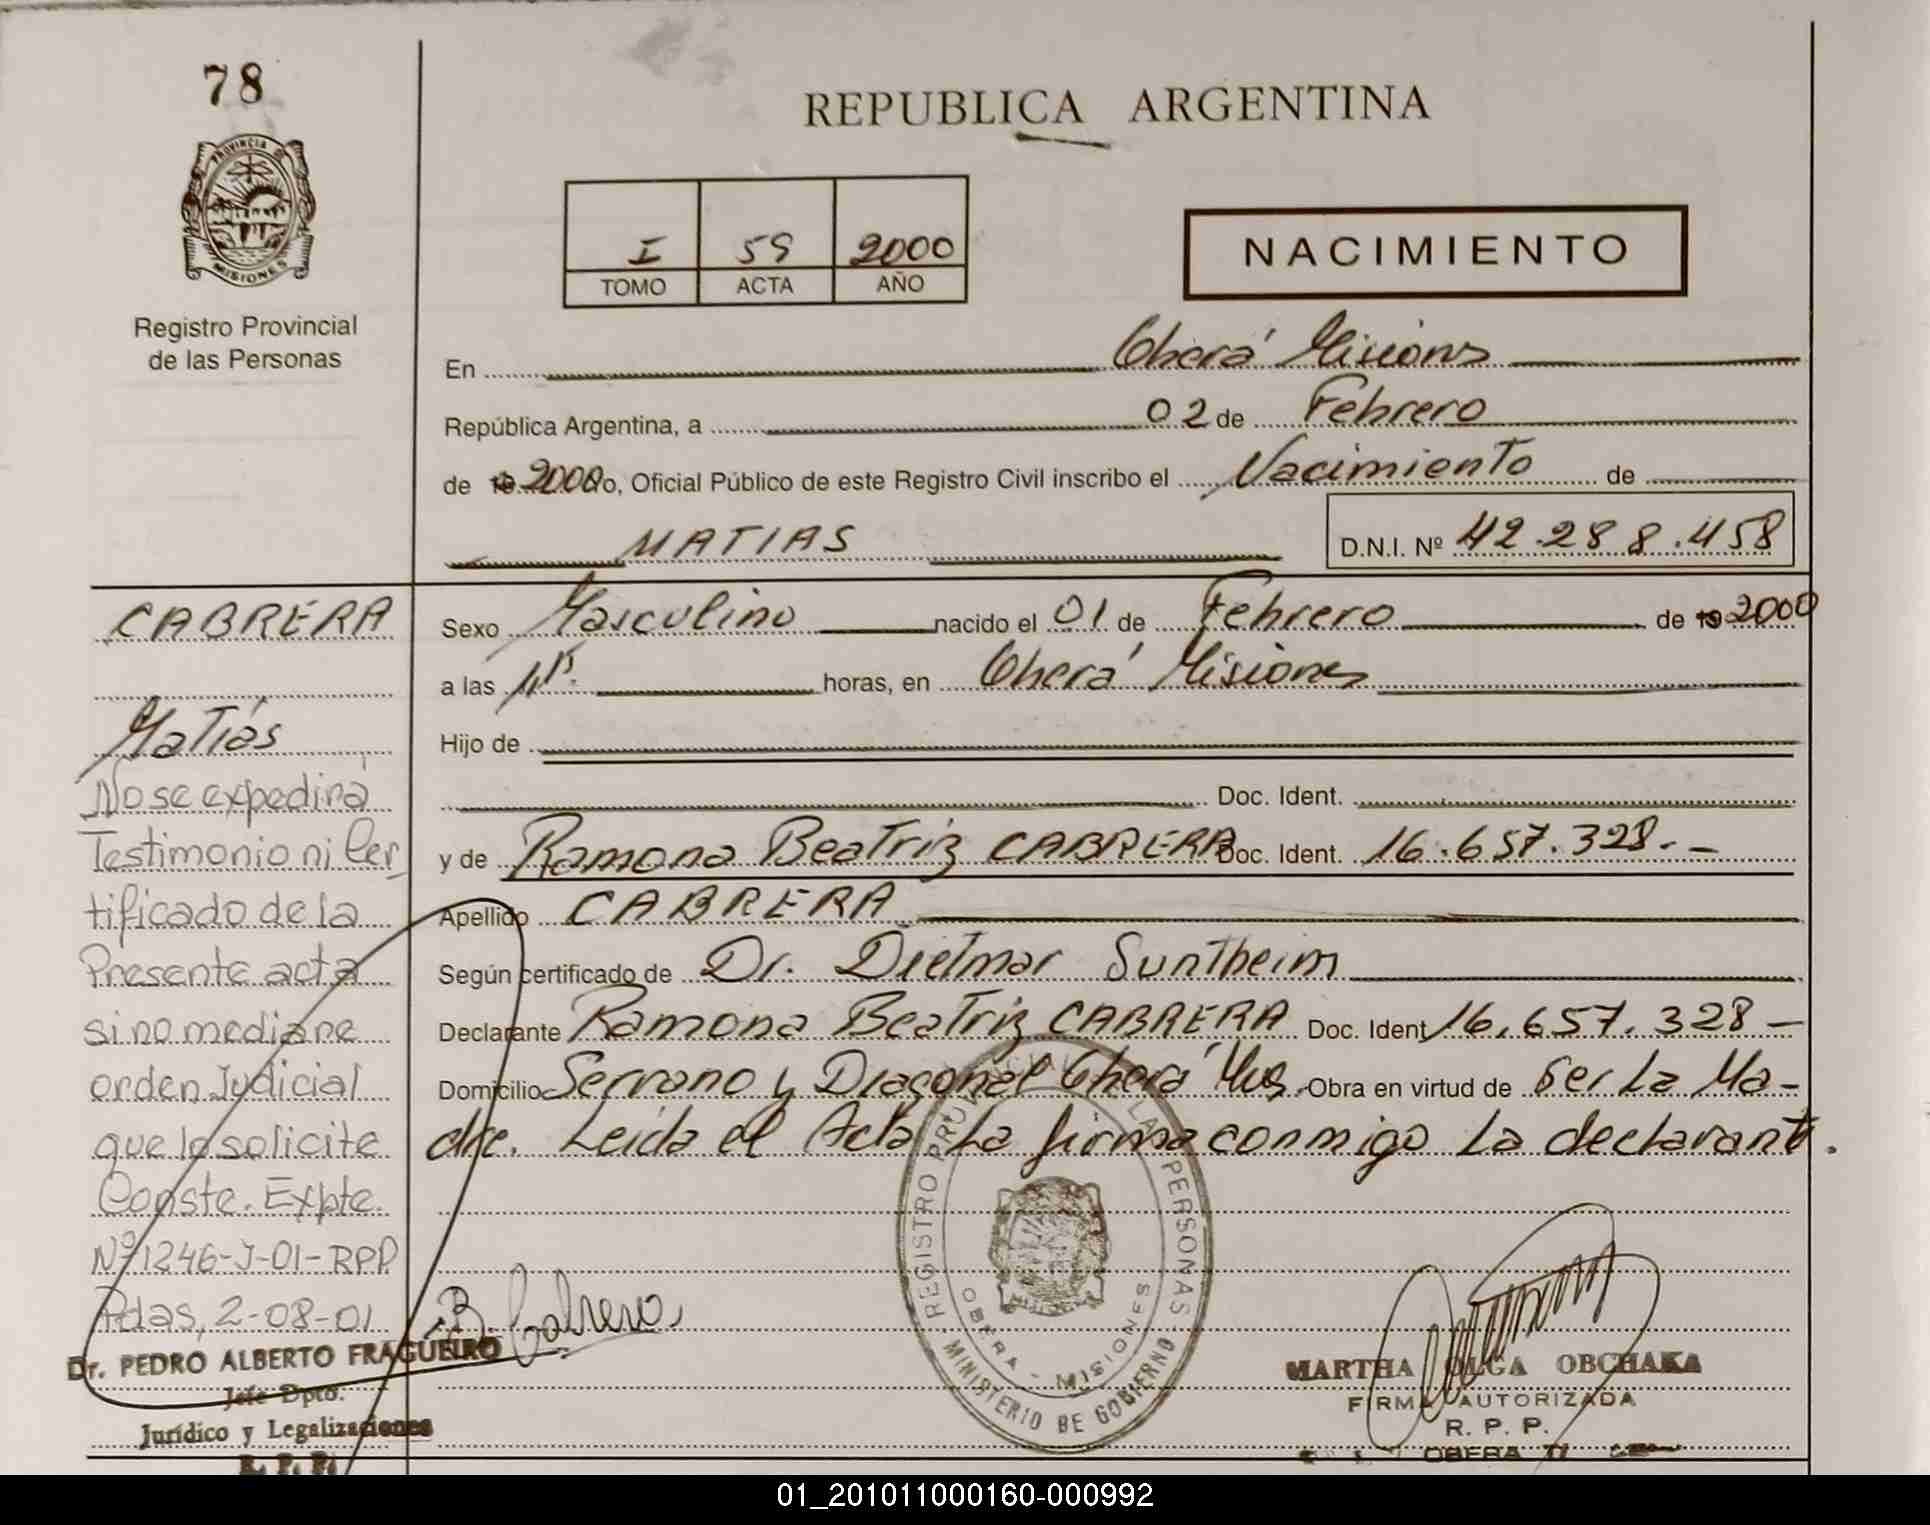 78
PROVINCIA DE
MISIONES
Registro Provincial
de las Personas
REPUBLICA ARGENTINA
I 59 2000
TOMO ACTA AÑO
NACIMIENTO
En Oberá Misiones
República Argentina, a 02 de Febrero
de 2000 Yo, Oficial Público de este Registro Civil inscribo el Nacimiento de
MATIAS D.N.I. Nº 42.288.458
CABRERA
Matías
No se expedirá
Testimonio ni Cer
tificado de la
Presente acta
sino mediane
orden Judicial
que lo solicite
Conste. Expte.
Nº 1246-J-01-RPP
Pdas, 2-08-01
Dr. PEDRO ALBERTO FRAGUEIRO
Jefe Dpto.
Jurídico y Legalizaciones
R. P. P.
Sexo Masculino nacido el 01 de Febrero de 19 2000
a las horas, en Oberá Misiones
Hijo de
Doc. Ident.
y de Ramona Beatriz CABRERA Doc. Ident. 16.657.328.-
Apellido CABRERA
Según certificado de Dr. Dietmar Suntheim
Declarante Ramona Beatriz CABRERA Doc. Ident 16.657.328-
Domicilio Serrano y Diagonal Oberá Mnes. Obra en virtud de Ser La Ma-
dre. Leida el Acta La firma conmigo La declarante.
B. Cabrera
REGISTRO PROVINCIAL DE LAS PERSONAS
OBERA - MISIONES
MINISTERIO DE GOBIERNO
MARTHA OLGA OBCHAKA
FIRMA AUTORIZADA
R. P. P.
OBERA
01_201011000160-000992